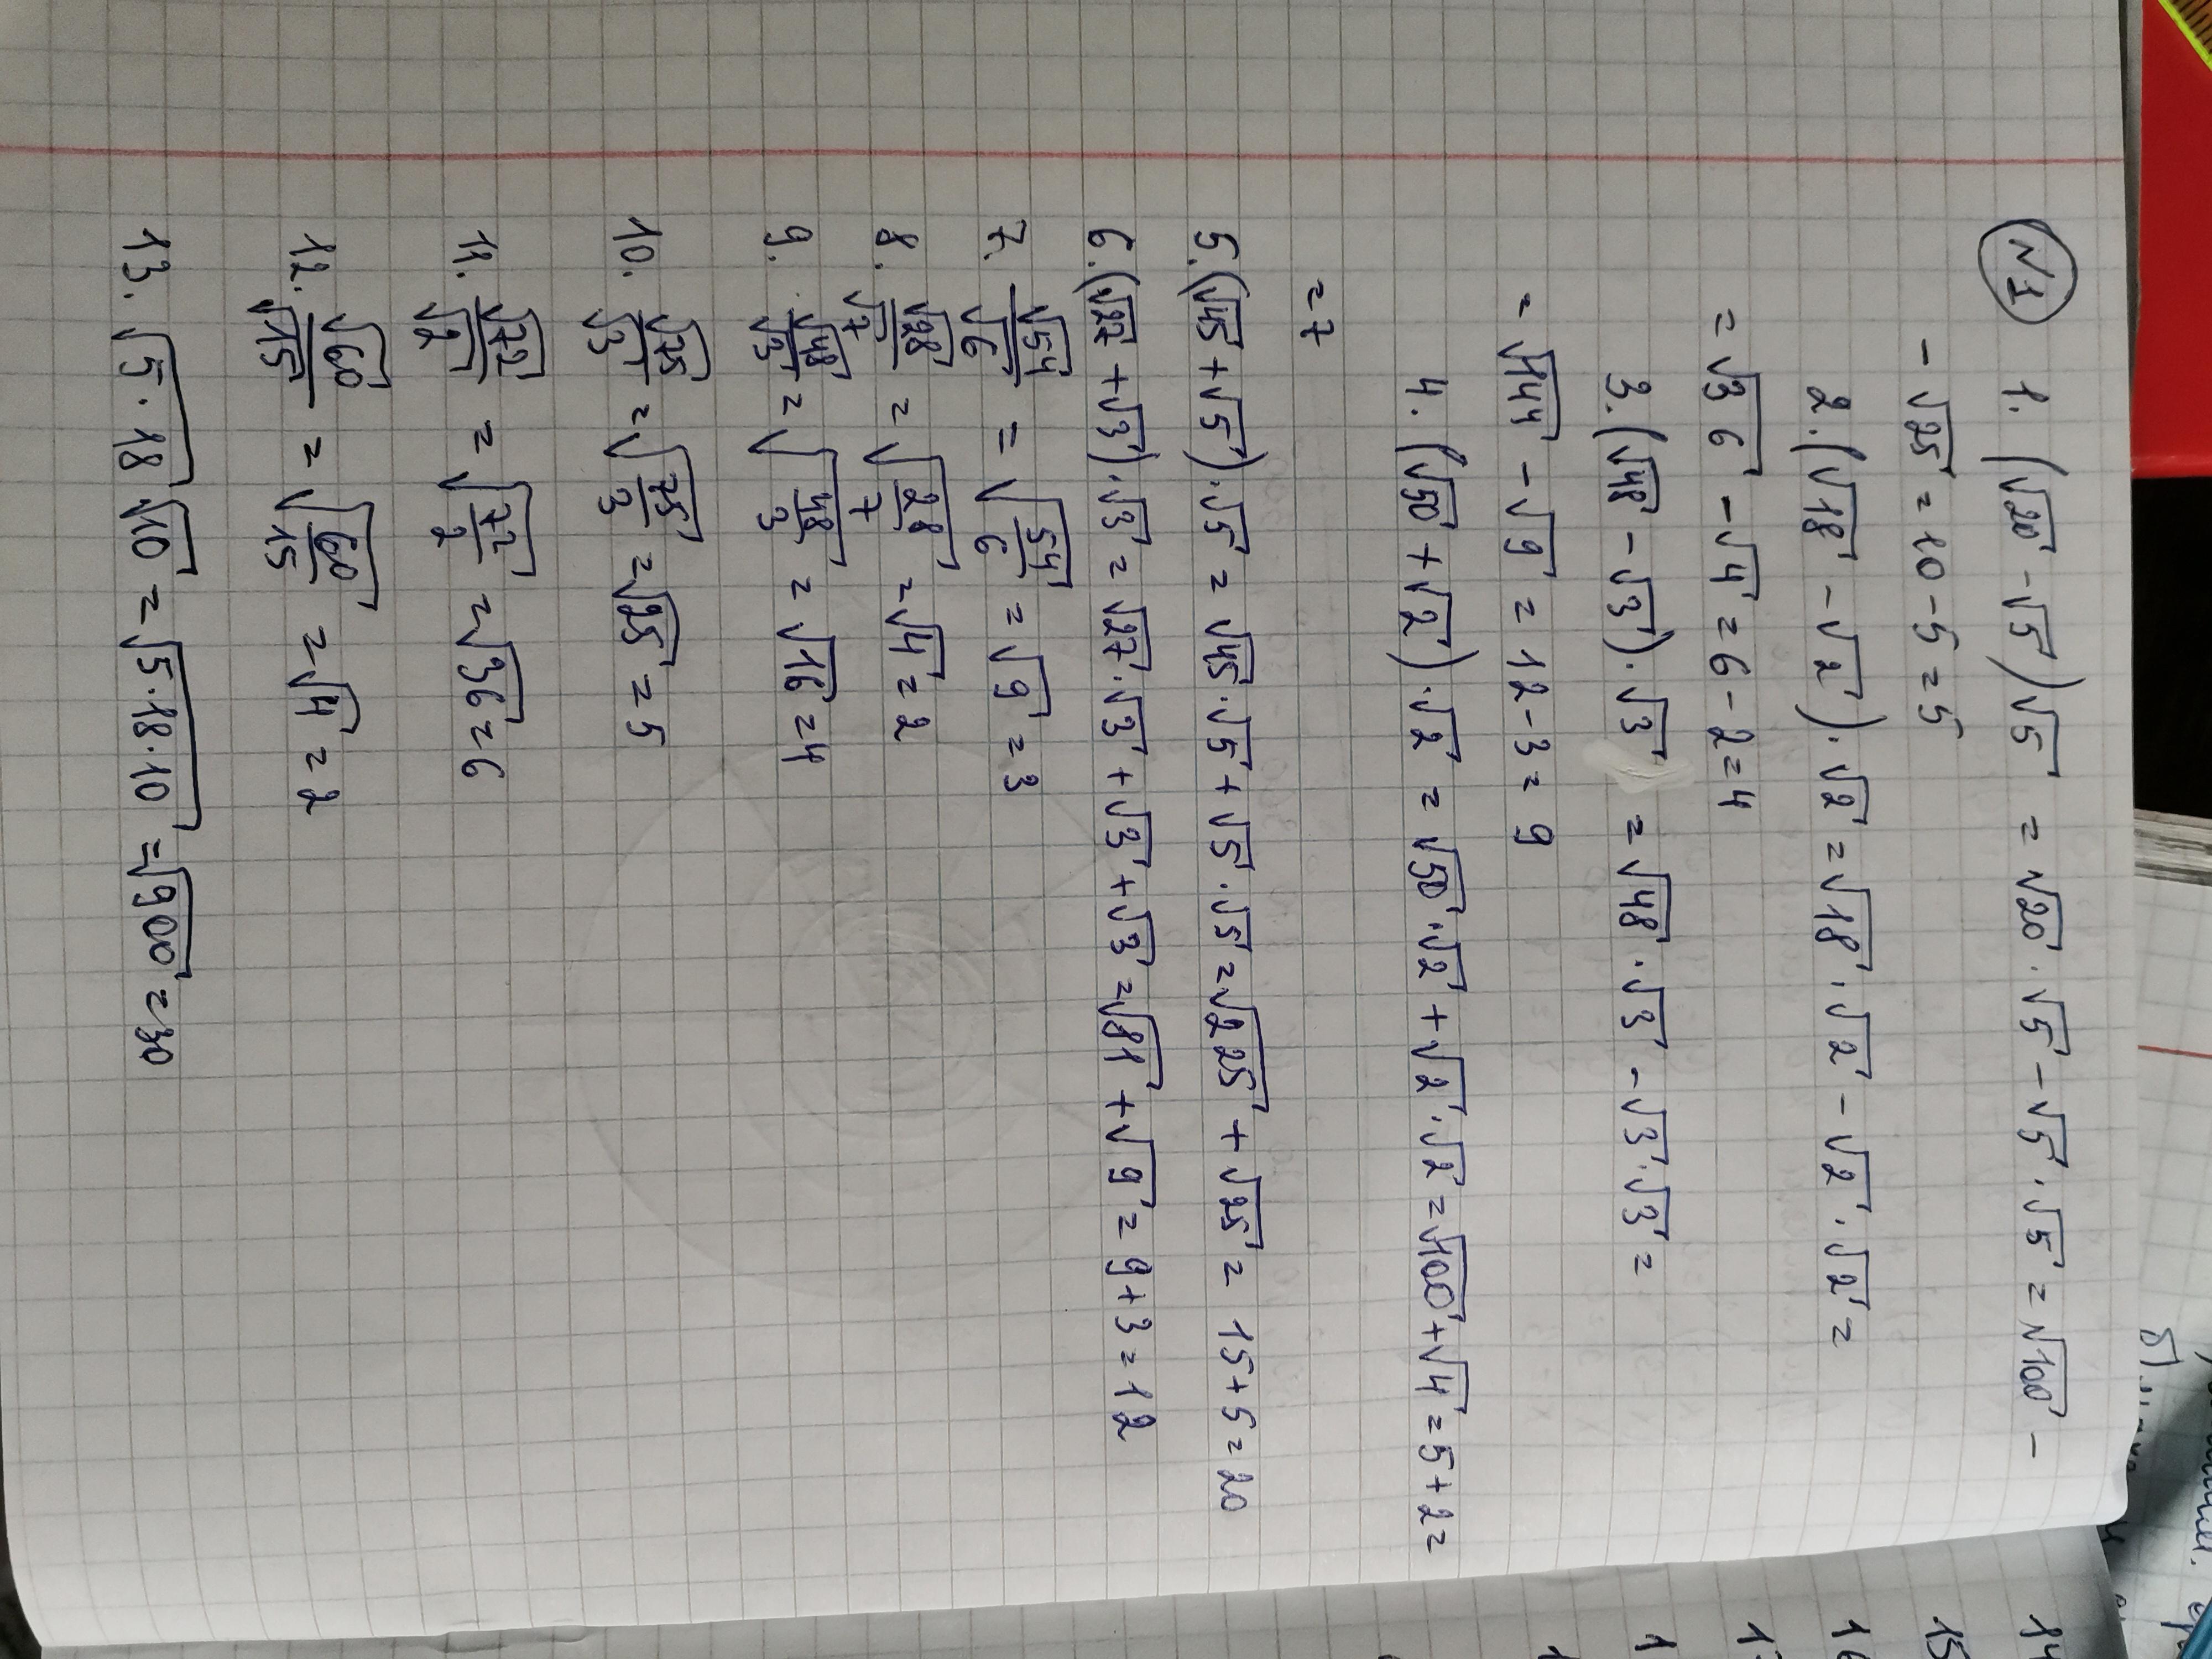 N1
1. (√20 - √5)√5 = √20 · √5 - √5 · √5 = √100 -
- √25 = 10 - 5 = 5
2. (√18 - √2) · √2 = √18 · √2 - √2 · √2 =
= √36 - √4 = 6 - 2 = 4
3. (√48 - √3) · √3 = √48 · √3 - √3 · √3 =
= √144 - √9 = 12 - 3 = 9
4. (√50 + √2) · √2 = √50 · √2 + √2 · √2 = √100 + √4 = 5 + 2 =
= 7
5. (√45 + √5) · √5 = √45 · √5 + √5 · √5 = √225 + √25 = 15 + 5 = 20
6. (√27 + √3) · √3 = √27 · √3 + √3 + √3 = √81 + √9 = 9 + 3 = 12
7. √54/√6 = √(54/6) = √9 = 3
8. √28/√7 = √(28/7) = √4 = 2
9. √48/√3 = √(48/3) = √16 = 4
10. √75/√3 = √(75/3) = √25 = 5
11. √72/√2 = √(72/2) = √36 = 6
12. √60/√15 = √(60/15) = √4 = 2
13. √(5 · 18) √10 = √(5 · 18 · 10) = √900 = 30
14
15
16
1
1
1
б)